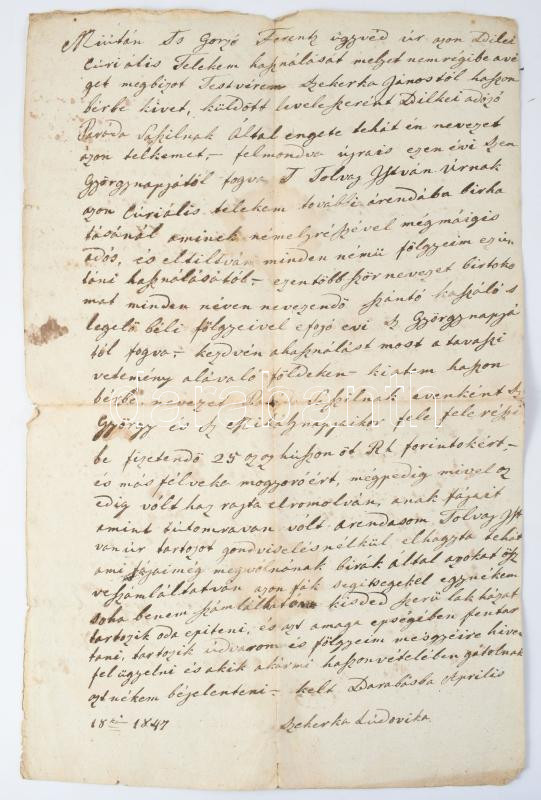 Miután Ts Gorzó Ferentz ügyvéd úr azon Dilei
Curiális Telekem használását melyet nemrégibe avé
get megbizot Testvérem Szekerka Jánostól haszon
bérbe kivet, küldött levele szerent Dilkei adózó
Által engete tehát én nevezet
azon telkemet,- felmondva újrais ezen évi Szen
Györgynapjától fogva T Tolvaj Jstván Úrnak
azon Curiális telekem további árendába birha
tásánál aminek némely részével mégmáigis
adós, és eltiltván minden némü fölgyeim
tani használásától- ezentöbbször nevezet birtoko
mat minden néven nevezendő szántó kaszáló s
legelő béli fölgyeivel efojó évi Sz Györgynapjá
tól fogva- kezdvén ahasználást most a tavaszi
vetemény alávaló földeken- kiatem haszon
bérbe nevezet evenként Sz
György és Sz Mihálynappaikor fele fele részi
be fizetendő 25 azaz huszon öt Rf forintokért-
és más félvéka mogyoróért, mégpedig mivel az
edig vólt haz rajta elromolván, anak fájait
amint tútomravan volt árendásom Tolvaj Jst
ván úr tartozot gondviselés nélkül elhagyta tehát
ami fájaimég megvólnának birák által azokat ösz
veszámláltatván azon fák segitségekel egynekem
soha benem számlálható kisded szerü lak házat
tartozik oda épiteni, és azt amaga épségiben fentar
tani, tartozik údvarom és fölgyeim mesgyéire hiven
fel ügyelni és akik akármi haszonvételében gátolnák
aztnékem béjelenteni- kelt Darabásba Aprilis
18kán 1847 Szekerka Ludovika
darabanth